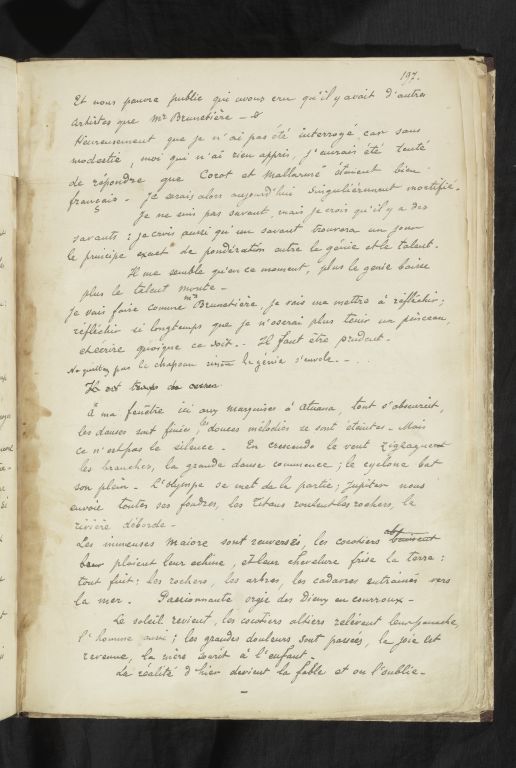 107.
Et nous pauvre public qui avons cru qu'il y avait d'autres
artistes que Mr Brunetière –
Heureusement que je n'ai pas été interrogé car sans
modestie, moi qui n'ai rien appris, j'aurais été tenté
de répondre que Corot et Mallarmé étaient bien
français. Je serais alors aujourd'hui singulièrement mortifié.
Je ne suis pas savant, mais je crois qu'il y a des
savants: je crois aussi qu'un savant trouvera un jour
le principe exact de pondération entre le génie et le talent.
Il me semble qu'en ce moment, plus le génie baisse
plus le talent monte –
Je vais faire comme Mr Brunetière, je vais me mettre à réfléchir;
réfléchir si longtemps que je n'oserai plus tenir un pinceau,
ni écrire quoique ce soit.. Il faut être prudent.
Ne quittez pas le chapeau sinon le génie s'envole. – . . .
Il est temps de cesser
À ma fenêtre ici aux marquises à Atuana, tout s'obscurcit,
les danses sont finies, les douces mélodies se sont éteintes. Mais
ce n'est pas le silence. En crescendo le vent zigzague
les branches, la grande danse commence; le cyclone bat
son plein. L'Olympe se met de la partie; Jupiter nous
envoie toutes ses foudres, les Titans roulent les rochers, la
rivière déborde –
Les immenses maiore sont renversés, les cocotiers
ploient leur echine, et leur chevelure frise la terre:
tout fuit: les rochers, les arbres, les cadavres entrainés vers
la mer. Passionnante orgie des Dieux en courroux –
Le soleil revient, les cocotiers altiers relèvent leur panache,
l'homme aussi; les grandes douleurs sont passées, la joie est
revenue, la mère sourit à l'enfant.
La réalité d'hier devient la fable et on l'oublie –